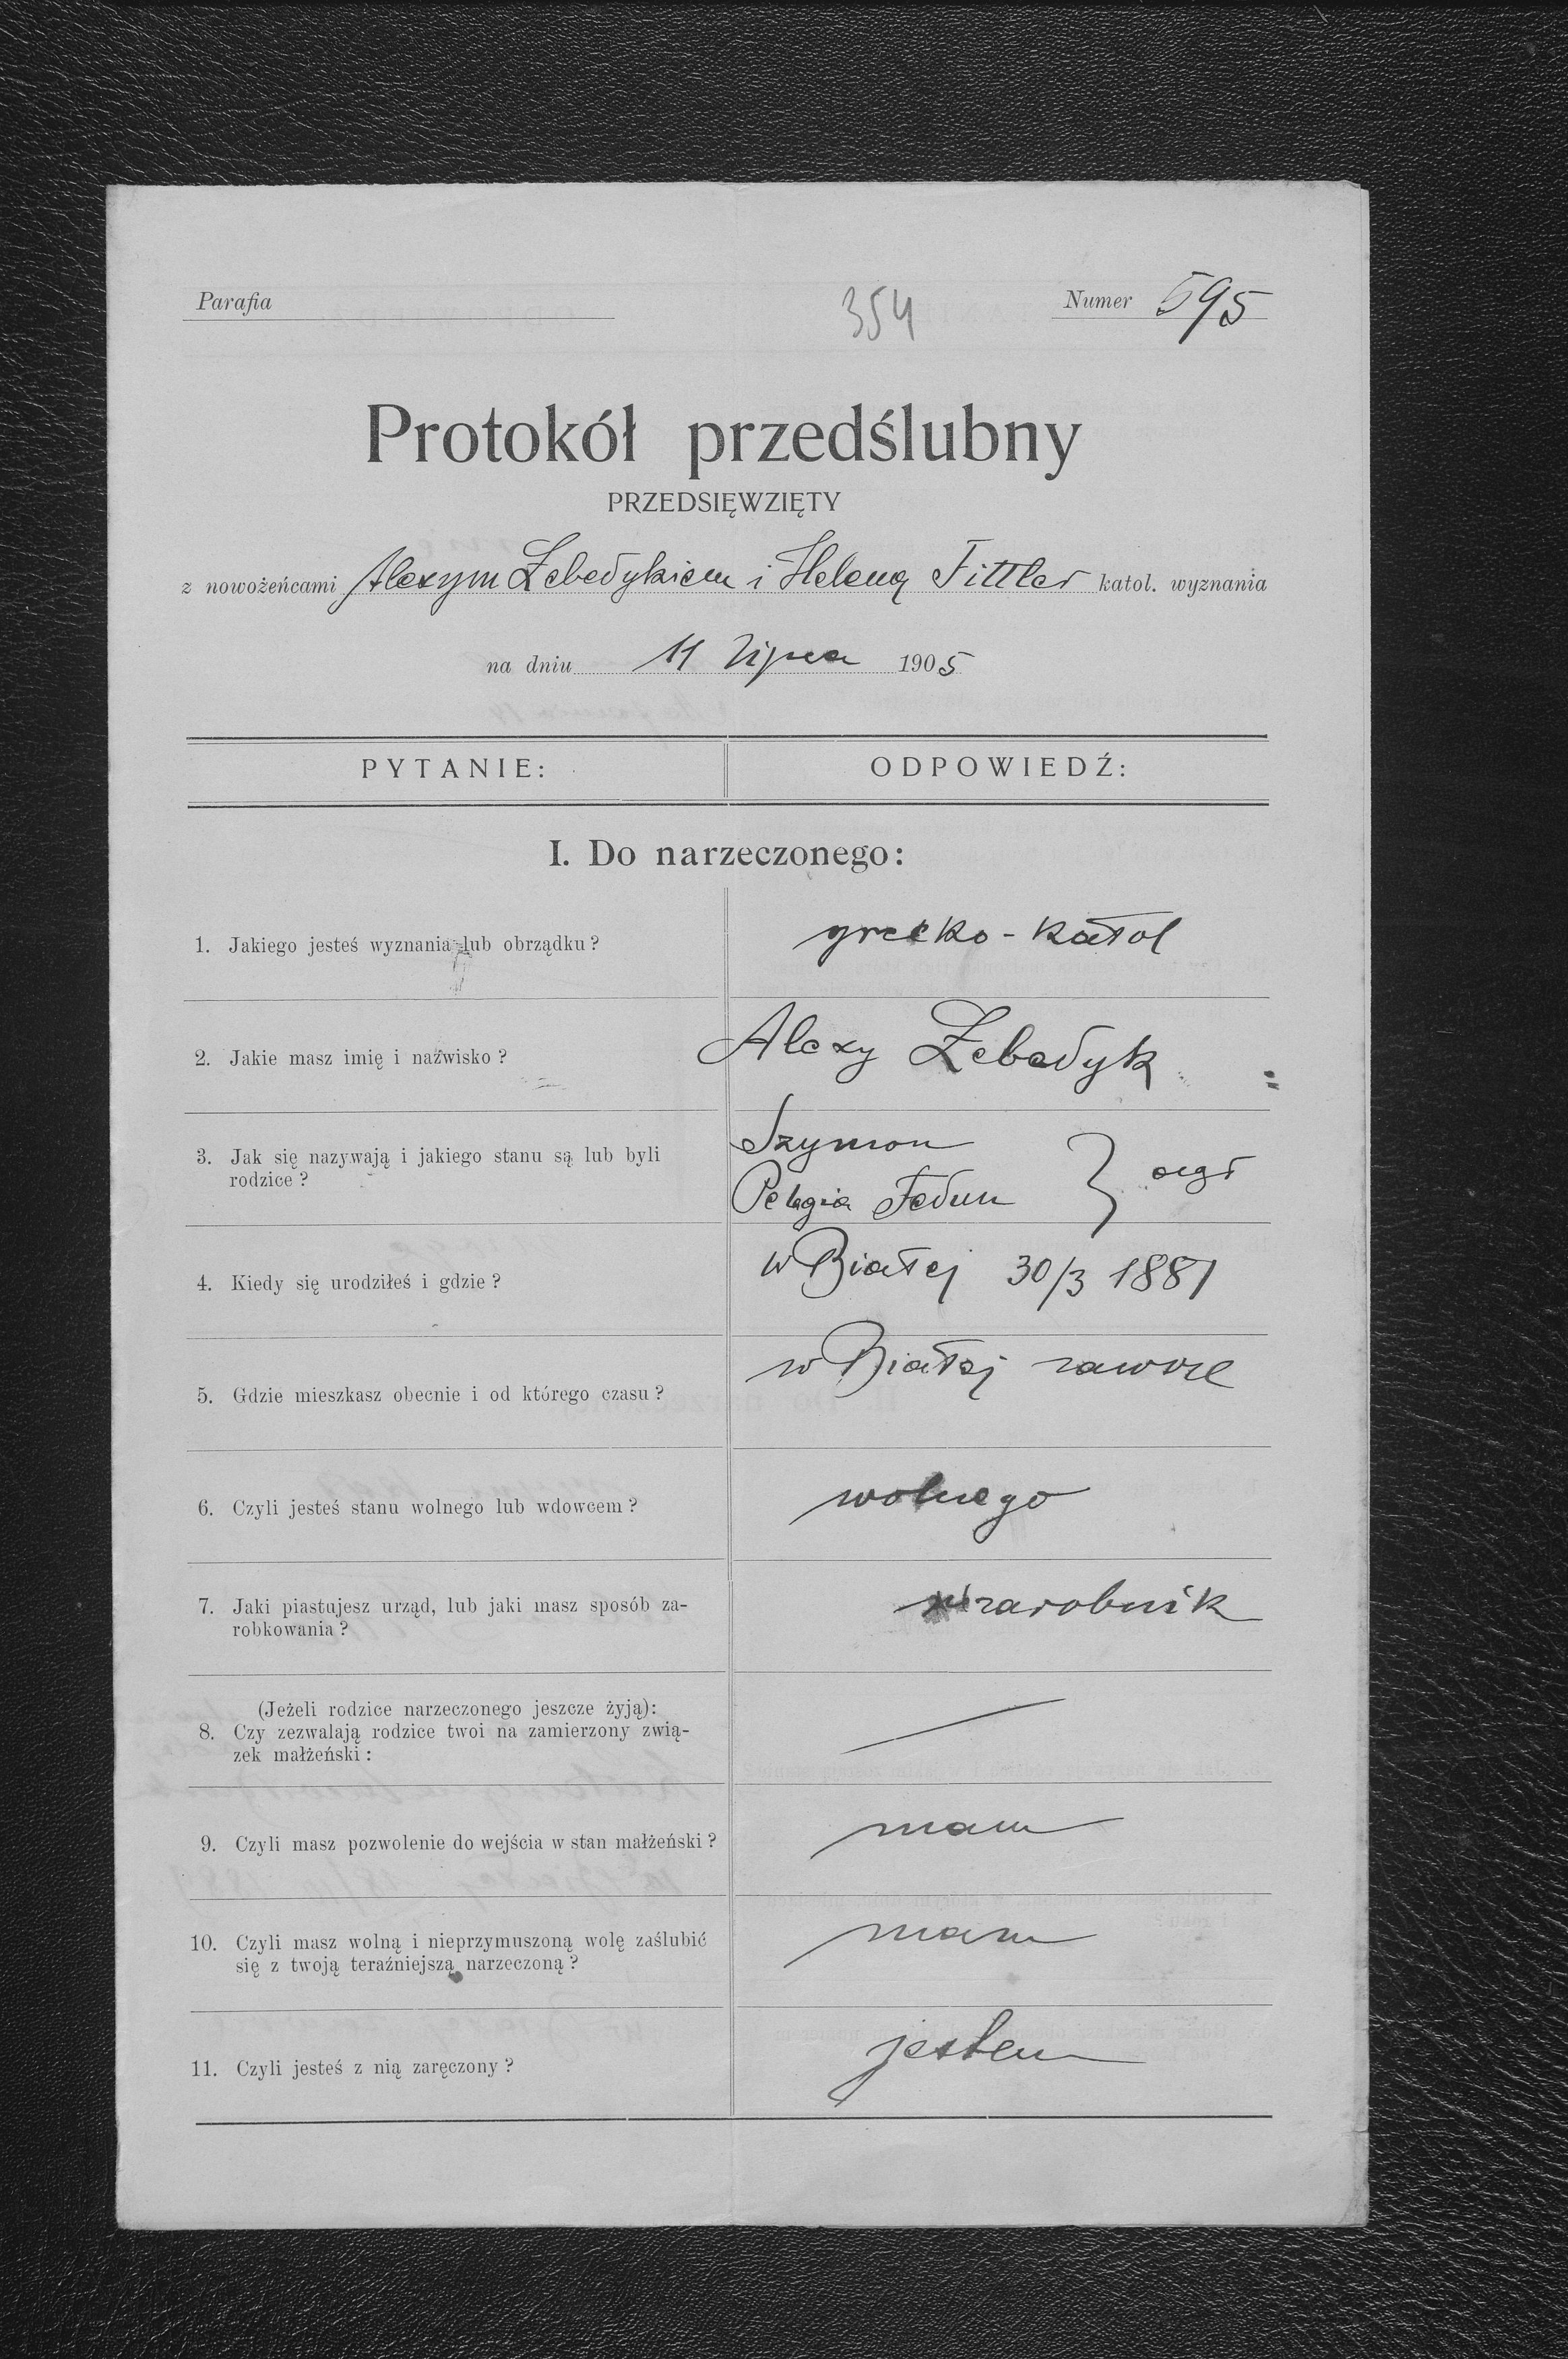 Parafia
354
Numer 595
Protokół przedślubny
PRZEDSIĘWZIĘTY
z nowożeńcami Alexym Łebedykiem i Heleną Tittler katol. wyznania
na dniu 11 lipca 1905
PYTANIE:
ODPOWIEDŹ:
I. Do narzeczonego:
1. Jakiego jesteś wyznania lub obrządku?
grecko-katol
2. Jakie masz imię i nazwisko?
Alexy Łebedyk
3. Jak się nazywają i jakiego stanu są lub byli
rodzice?
Szymon
Pelagia Fedun
4. Kiedy się urodziłeś i gdzie?
w Białej 30/3 1881
5. Gdzie mieszkasz obecnie i od którego czasu?
w Białej zawsze
6. Czyli jesteś stanu wolnego lub wdowcem?
wolnego
7. Jaki piastujesz urząd, lub jaki masz sposób za-
robkowania?
zarobnik
(Jeżeli rodzice narzeczonego jeszcze żyją):
8. Czy zezwalają rodzice twoi na zamierzony zwią-
zek małżeński:
9. Czyli masz pozwolenie do wejścia w stan małżeński?
mam
10. Czyli masz wolną i nieprzymuszoną wolę zaślubić
się z twoją teraźniejszą narzeczoną?
mam
11. Czyli jesteś z nią zaręczony?
jestem